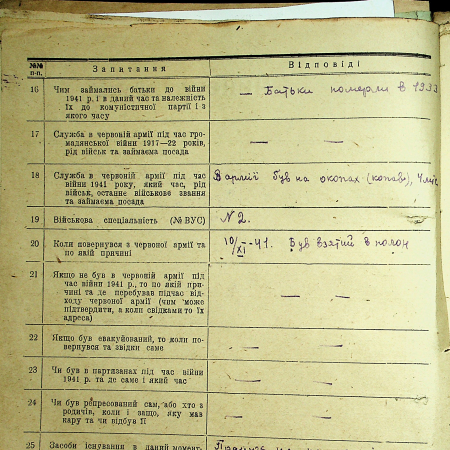 №№ п-п. Запитання Відповіді
16 Чим займались батьки до війни
1941 р. і в даний час та належність
їх до комуністичної партії і з
якого часу
— Батьки померли в 1933
17 Служба в червоній армії під час гро-
мадянської війни 1917—22 років,
рід військ та займаєма посада
— —
18 Служба в червоній армії під час
війни 1941 року, який час, рід
військ, останнє військове звання
та займаєма посада
В армії був на окопах (копав), 4 міс
19 Військова спеціальність (№ ВУС)
№ 2.
20 Коли повернувся з червоної армії та
по якій причині
10/XI-41. Був взятий в полон
21 Якщо не був в червоній армії під
час війни 1941 р., то по якій при-
чині та де перебував підчас від-
ходу червоної армії (чим може
підтвердити, а коли свідками то їх
адреса)
— —
22 Якщо був евакуйований, то коли по-
вернувся та звідки саме
— —
23 Чи був в партизанах під час війни
1941 р. та де саме і який час
— —
24 Чи був репресований сам, або хто з
родичів, коли і защо, яку мав
кару та чи відбув її
— —
25 Засоби існування в даний момент